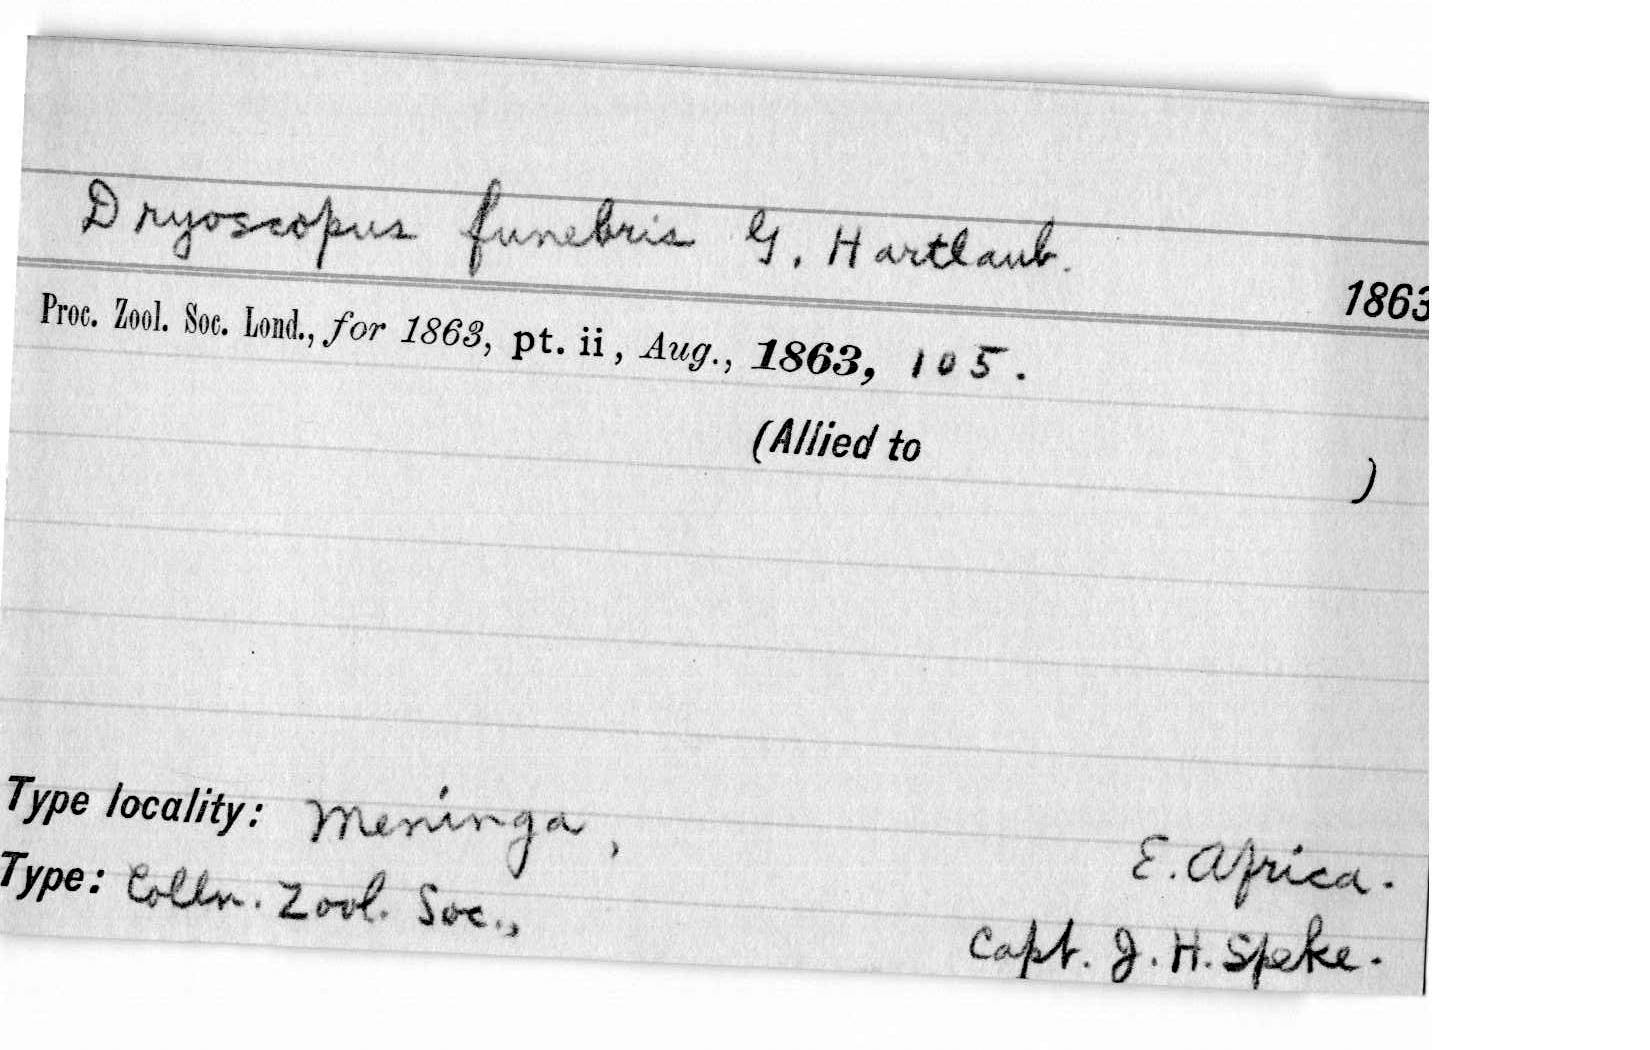 Dryoscopus funebris G. Hartlaub.
1863
Proc. Zool. Soc. Lond., for 1863, pt. ii, Aug., 1863, 105.
(Allied to )
Type locality: Meninga, E. Africa.
Type: Colln. Zool. Soc., Capt. J. H. Speke.